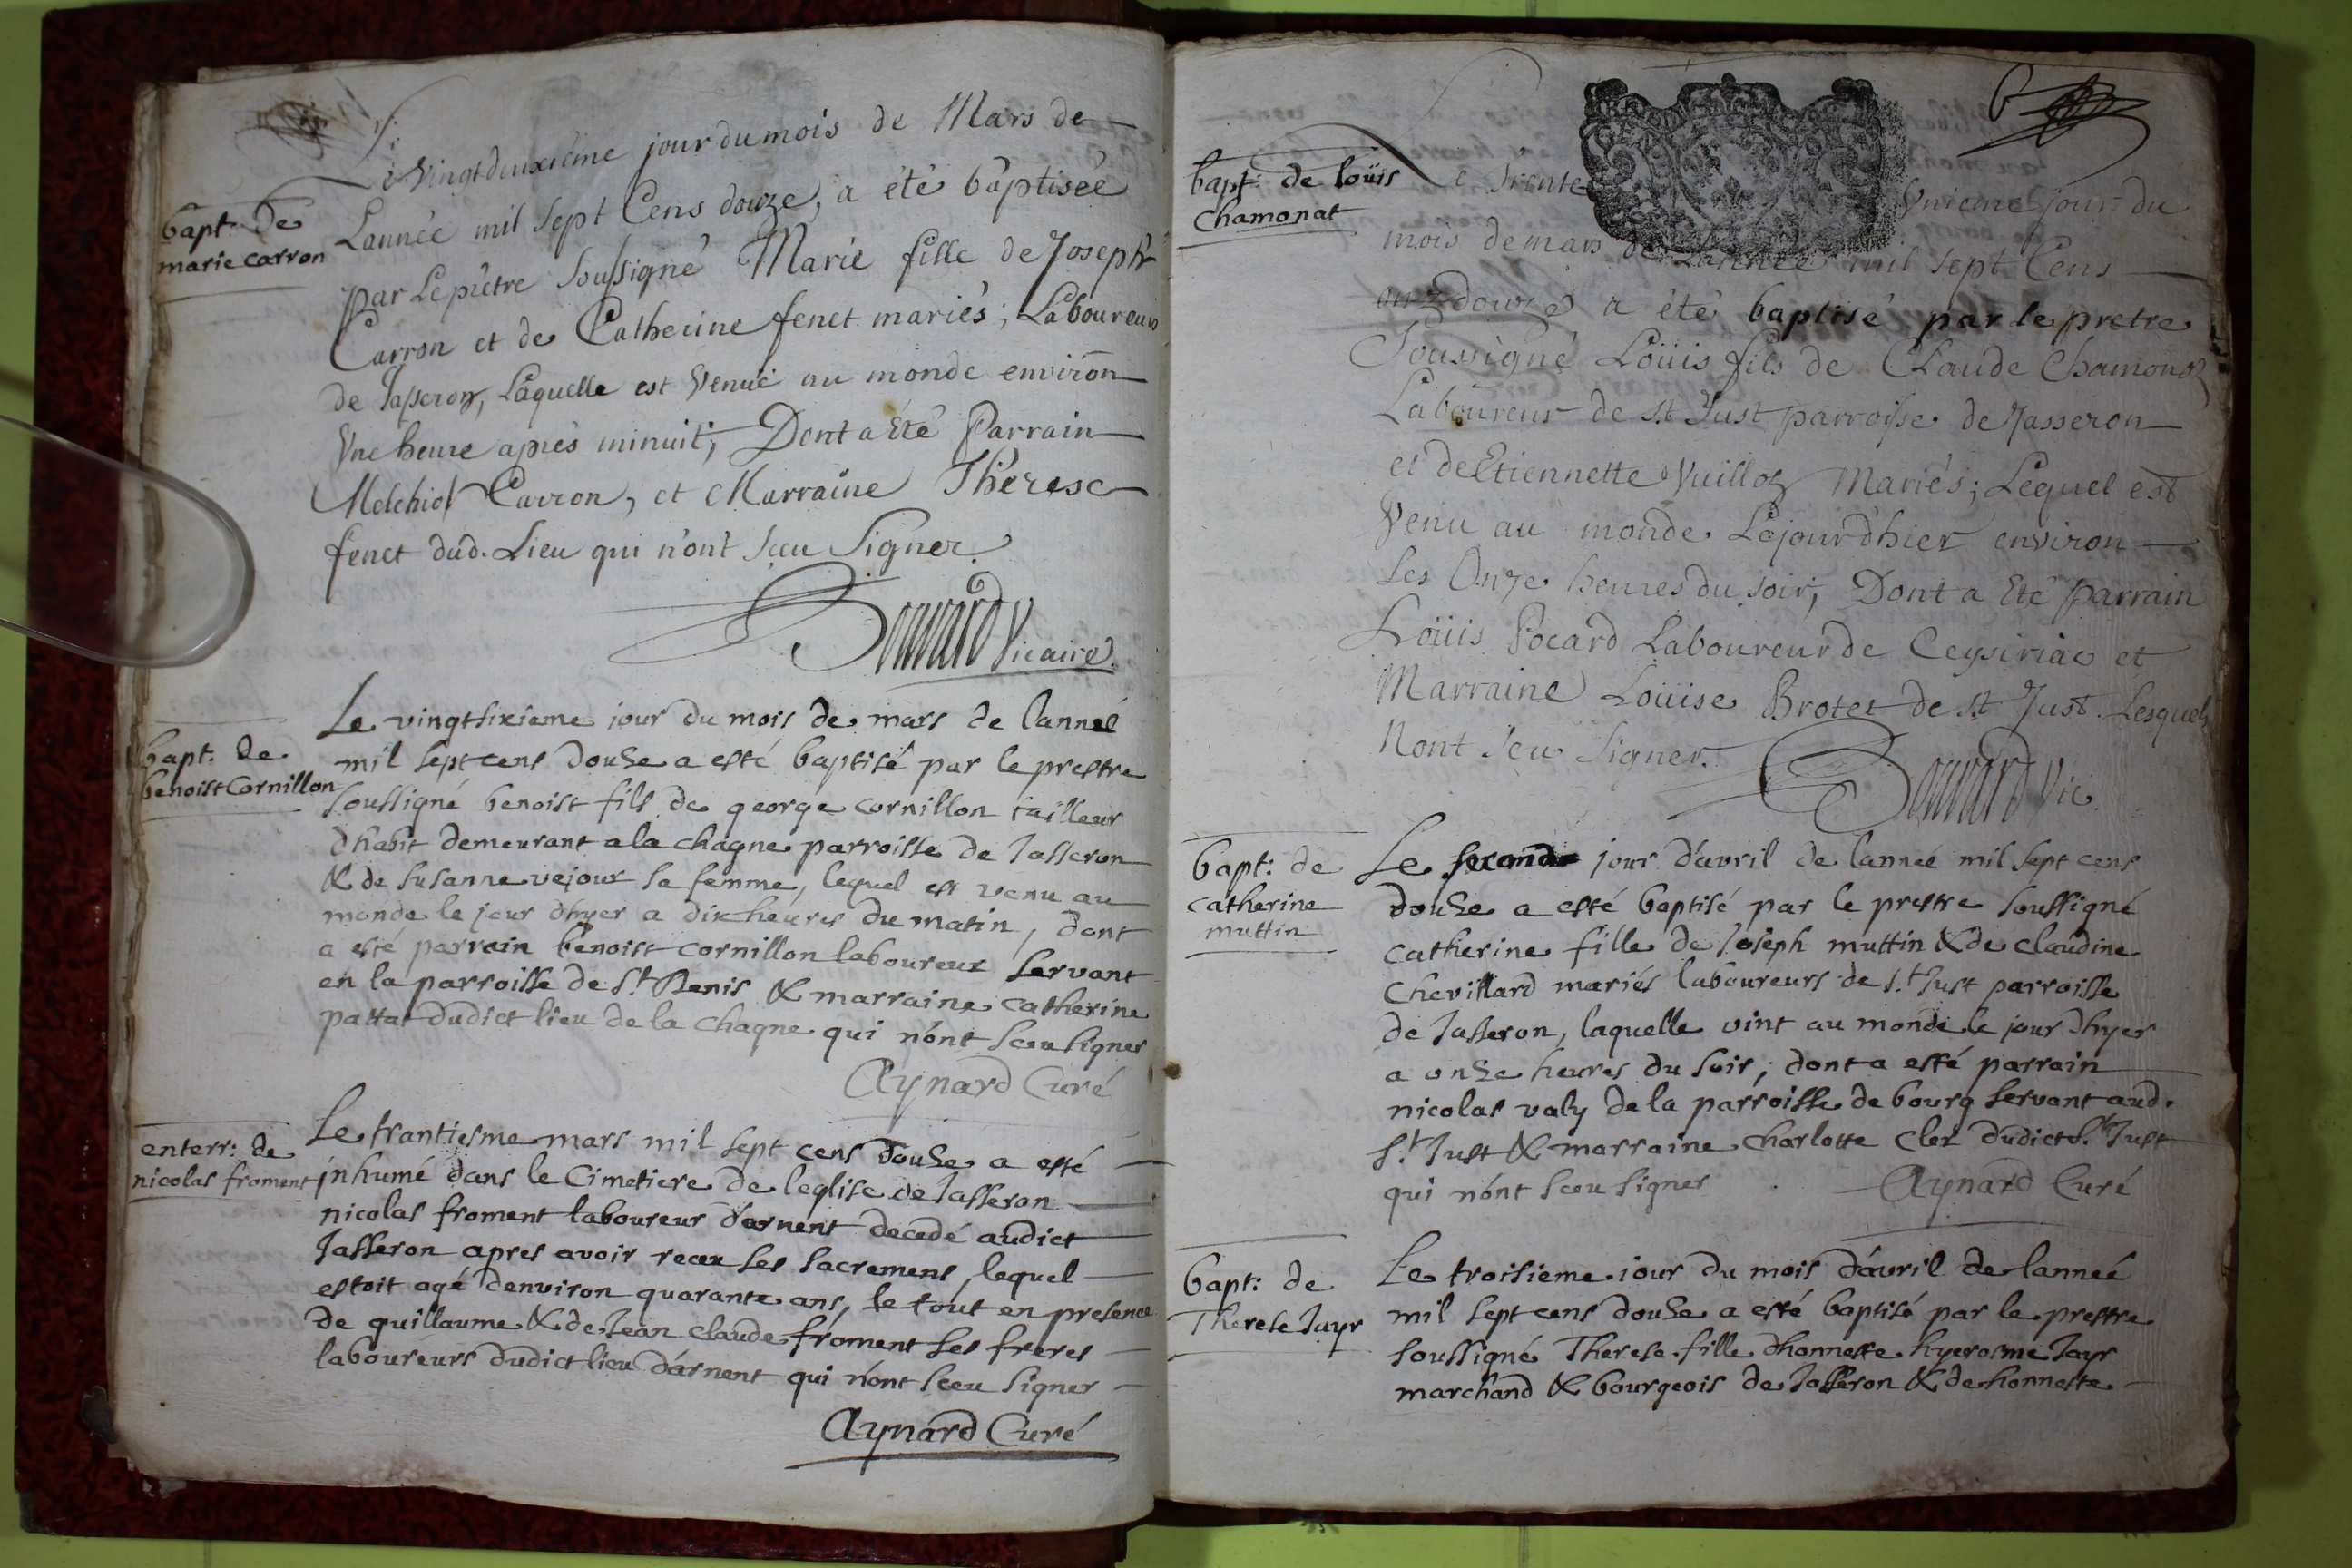 bapt: de
marie carron
Le Vingt deuxième jour du mois de Mars de
Lannèe mil sept Cens douze, a été bâptisèe
par Le prêtre Soussigné Marie fille de Joseph
Carron et de Catherine fenet mariès; Laboureurs
de Jasseron, Laquelle est Venuë au monde environ
Vne heure après minuit; Dont a Eté Parrain
Melchiol Carron, et Marraine Thèrese
fenet dud. Lieu qui n'ont Sceu Signer.
Bouvard Vicaire.
bapt: de
benoist Cornillon
Le vingtsixieme jour du mois de mars de lanneé
mil sept cens douze a esté baptisé par le prestre
soussigné benoist fils de george cornillon tailleur
dhabit demeurant a la chagne parroisse de Jasseron
& de susanne vejoux sa femme, lequel est venu au
monde le jour dhyer a dix heures du matin, dont
a esté parrain benoist cornillon laboureur servant
en la parroisse de s.t Denis & marraine catherine
pattat dudict lieu de la chagne qui n'ont sceu signer
Aynard Curé
enterr: de
nicolas froment
Le trantiesme mars mil sept cens douze a esté
inhumé dans le Cimetiere de leglise de Jasseron
nicolas froment laboureur d'arnent decedé audict
Jasseron apres avoir receu ses sacremens, lequel
estoit agé denviron quarante ans, le tout en presence
de guillaume & de Jean claude froment ses freres
laboureurs dudict lieu d'arnent qui n'ont sceu signer
Aynard Curé
bapt: de loüis
chamonat
Le trente Vnieme jour du
mois de mars de Lannèe mil sept Cens
douze a été baptisé par le pretre
Soussigné Loüis fils de Claude Chamonaz
Laboureur de st Just parroisse de Jasseron
et de Etiennette Vuilloz Mariés; Lequel est
Venu au monde Le jour d'hier environ
Les Onze heures du soir; Dont a Eté parrain
Loüis Pocard Laboureur de Ceysiriac et
Marraine Loüise Brotet de st Just. Lesquels
Nont sceu Signer.
Bouvard Vic.
bapt: de
catherine
muttin
Le second jour d'avril de lanneé mil sept cens
douze a esté baptisé par le prestre soussigné
catherine fille de Joseph muttin & de claudine
Chevillard mariés laboureurs de s.t Just parroisse
de Jasseron, laquelle vint au monde le jour dhyer
a onze heures du soir; dont a esté parrain
nicolas valy de la parroisse de bourg servant aud.
s.t Just & marraine charlotte cler dudict s.t Just
qui n'ont sceu signer
Aynard Curé
bapt: de
Therese Jayr
Le troisieme jour du mois d'avril de lanneé
mil sept cens douze a esté baptisé par le prestre
soussigné Therese fille dhonneste hyerosme Jayr
marchand & bourgeois de Jasseron & de honneste